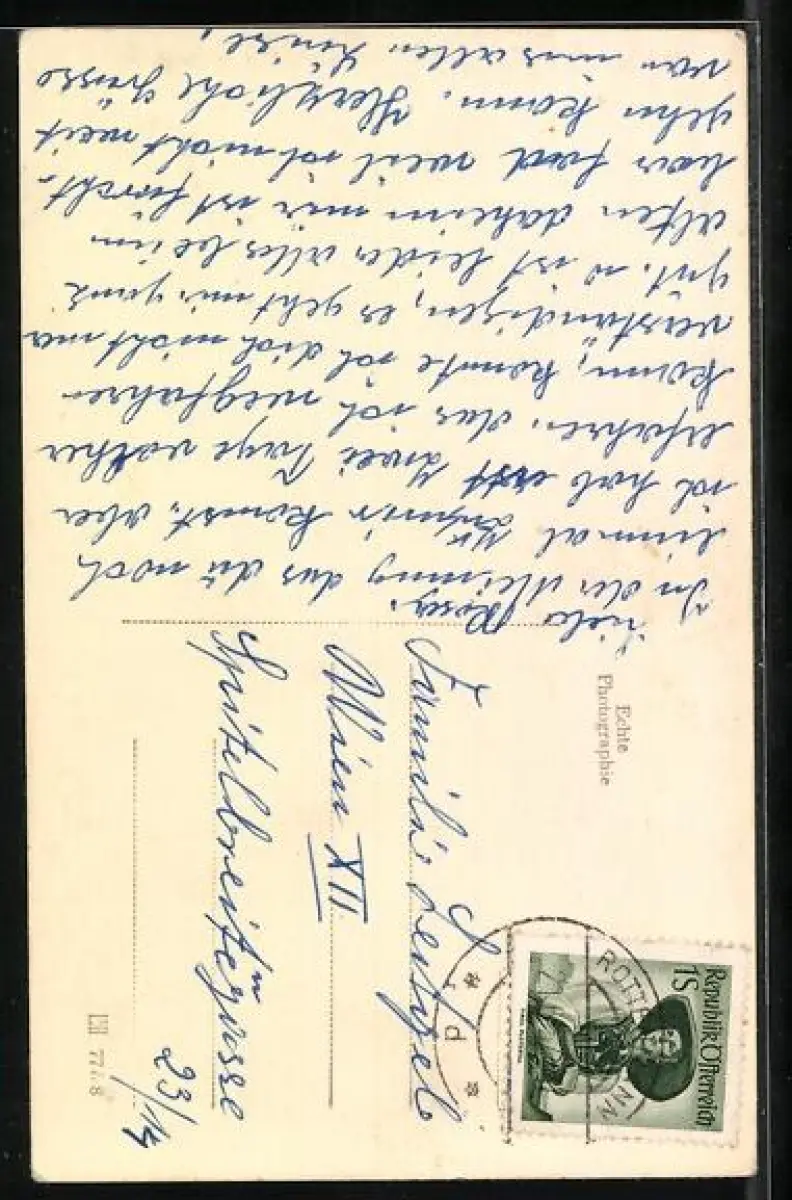 Liebe Rosa.
In der Meinung das du noch
einmal zu mir komst. aber
ich hab erst zwei Tage vorher
erfahren. das ich wegfahren
kann, konnte ich dich nicht mer
verständigen, es geht mir ganz
gut. es ist leider alles beim
alten daheim mir ist furcht-
bar fad weil ich nicht weit
gehn kann. Herzliche Grüsse
von uns allen
Echte
Photographie
Familie
Wien XII
Spitelbreitegasse
23/14
Republik Österreich
1S
ROTTENMANN
d